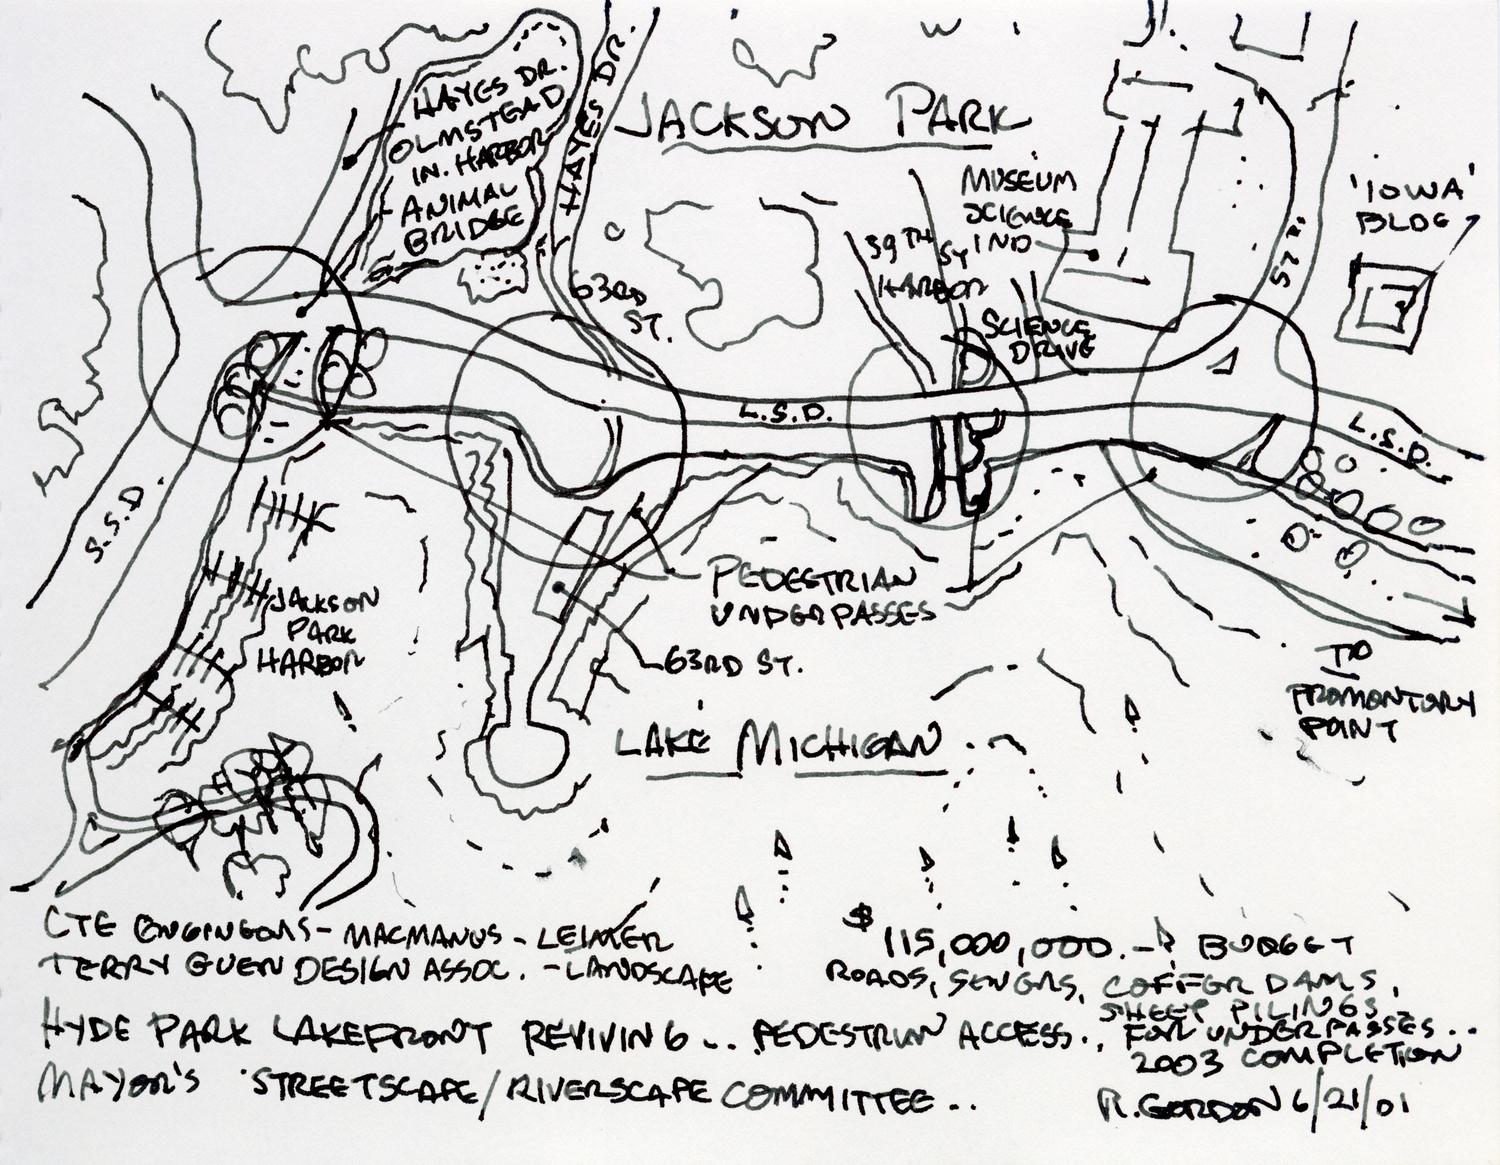 HAYES DR.
OLMSTEAD
IN. HARBOR
ANIMAL
BRIDGE
HAYES DR.
JACKSON PARK
MUSEUM
SCIENCE
IND
'IOWA'
BLDG
59TH ST
HARBOR
57TH.
63RD
ST.
SCIENCE
DRIVE
L.S.D.
L.S.D.
S.S.D.
PEDESTRIAN
UNDERPASSES
JACKSON
PARK
HARBOR
63RD ST.
TO
PROMONTORY
POINT
LAKE MICHIGAN
CTE ENGINEERS - MACMANUS - LEIMER
TERRY GUEN DESIGN ASSOC. - LANDSCAPE
$115,000,000.- BUDGET
ROADS, SEWERS, COFFER DAMS,
SHEEP PILINGS
HYDE PARK LAKEFRONT REVIVING.. PEDESTRIAN ACCESS.. FOR UNDERPASSES..
2003 COMPLETION
MAYOR'S STREETSCAPE/RIVERSCAPE COMMITTEE..
R.GORDON 6/21/01